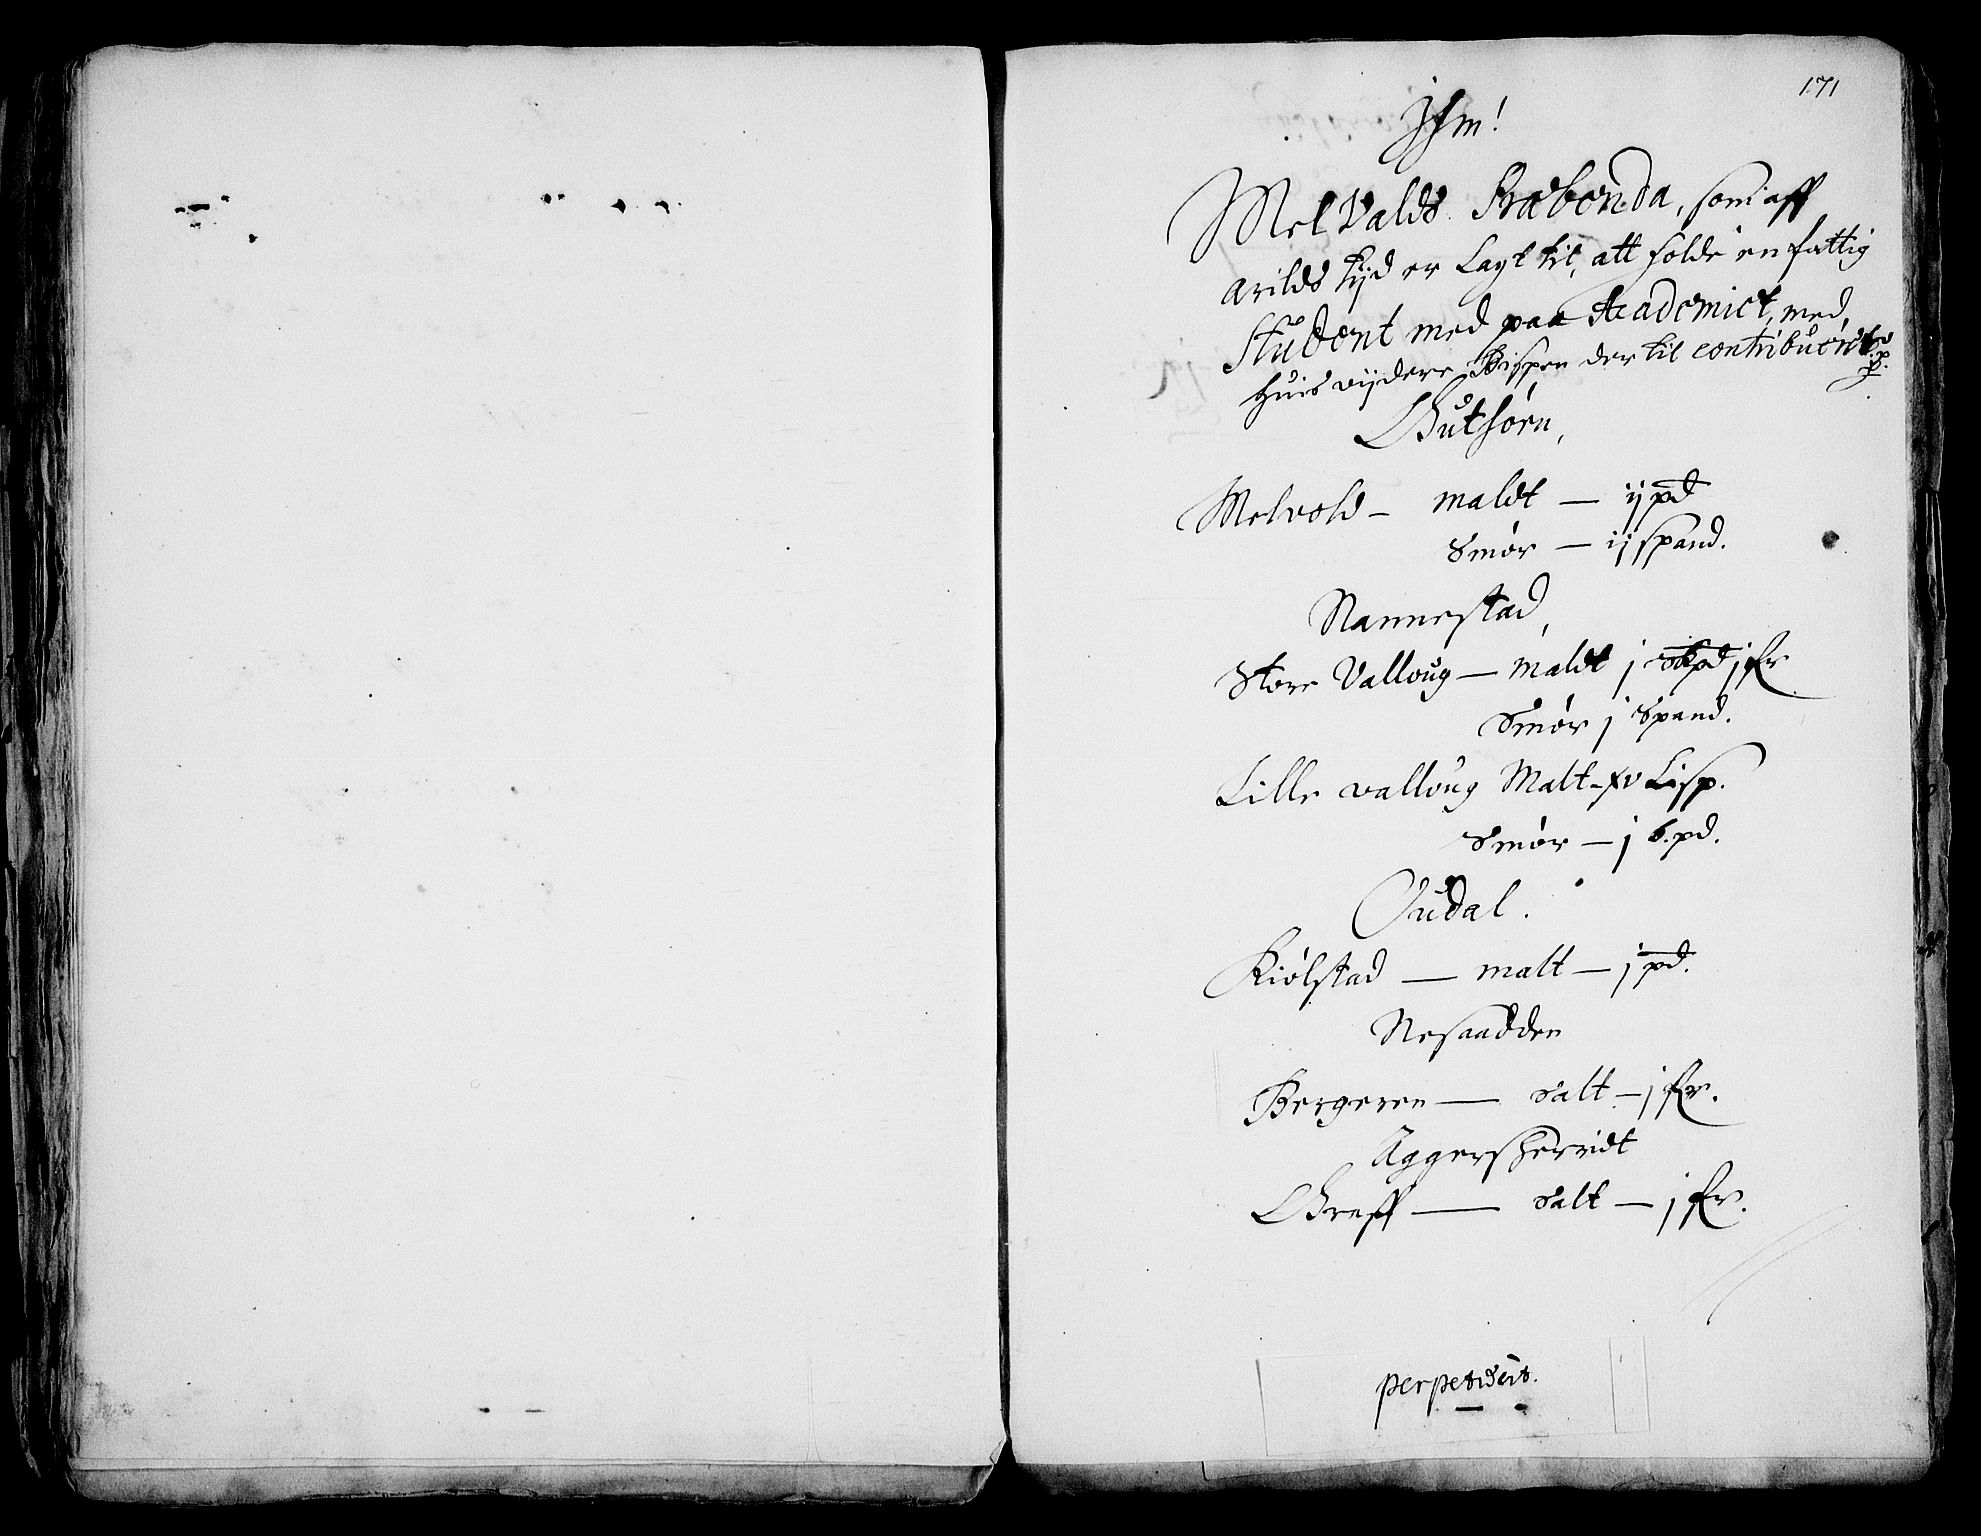 171
Jhm!
Melvalds Præbenda, som aff
arilds tijd er Lagt til, att holde en fattig
Student med paa Academiet, med,
huis vijdere Bispen der til contribuerit
Gutsorn,
Melvold - maldt - ij pd
Smør - ij spand.
Nannestad,
Store Valloug - maldt j skpd j fr
Smør j Spand.
Lille valloug Malt - xv Lisp.
Smør - j b.pd.
Oudal.
Kiølstad - malt - j pd.
Nesaadden
Bergeren - salt - j fr.
Aggersherridt
Greff - salt - j fr.